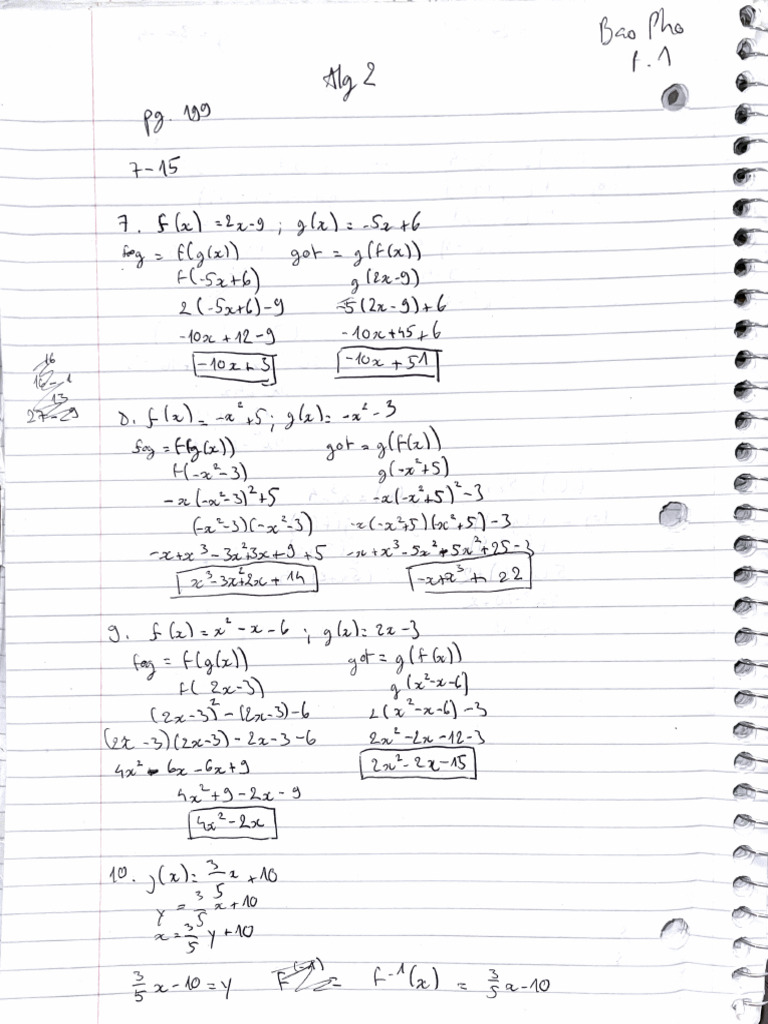 Bao Pho
P.1
Alg 2
pg. 199
7-15
7. f(x) = 2x-9 ; g(x) = -5x+6
fog = f(g(x)) gof = g(f(x))
f(-5x+6) g(2x-9)
2(-5x+6)-9 -5(2x-9)+6
-10x+12-9 -10x+45+6
-10x+3 -10x+51
8. f(x) = -x²+5 ; g(x) = -x²-3
fog = f(g(x)) gof = g(f(x))
f(-x²-3) g(-x²+5)
-x(-x²-3)²+5 -x(-x²+5)²-3
(-x²-3)(-x²-3) -x(-x²+5)(-x²+5)-3
-x+x³-3x²3x+9+5 -x+x³-5x²+5x²+25-3
x³-3x²2x+14 -x+x³+22
9. f(x) = x²-x-6 ; g(x) = 2x-3
fog = f(g(x)) gof = g(f(x))
f(2x-3) g(x²-x-6)
(2x-3)²-(2x-3)-6 2(x²-x-6)-3
(2x-3)(2x-3)-2x-3-6 2x²-2x-12-3
4x²-6x-6x+9 2x²-2x-15
4x²+9-2x-9
4x²-2x
10. f(x) = 3/5 x+10
y = 3/5 x+10
x = 3/5 y+10
3/5 x-10=y f⁻¹(x) = 3/5 x-10